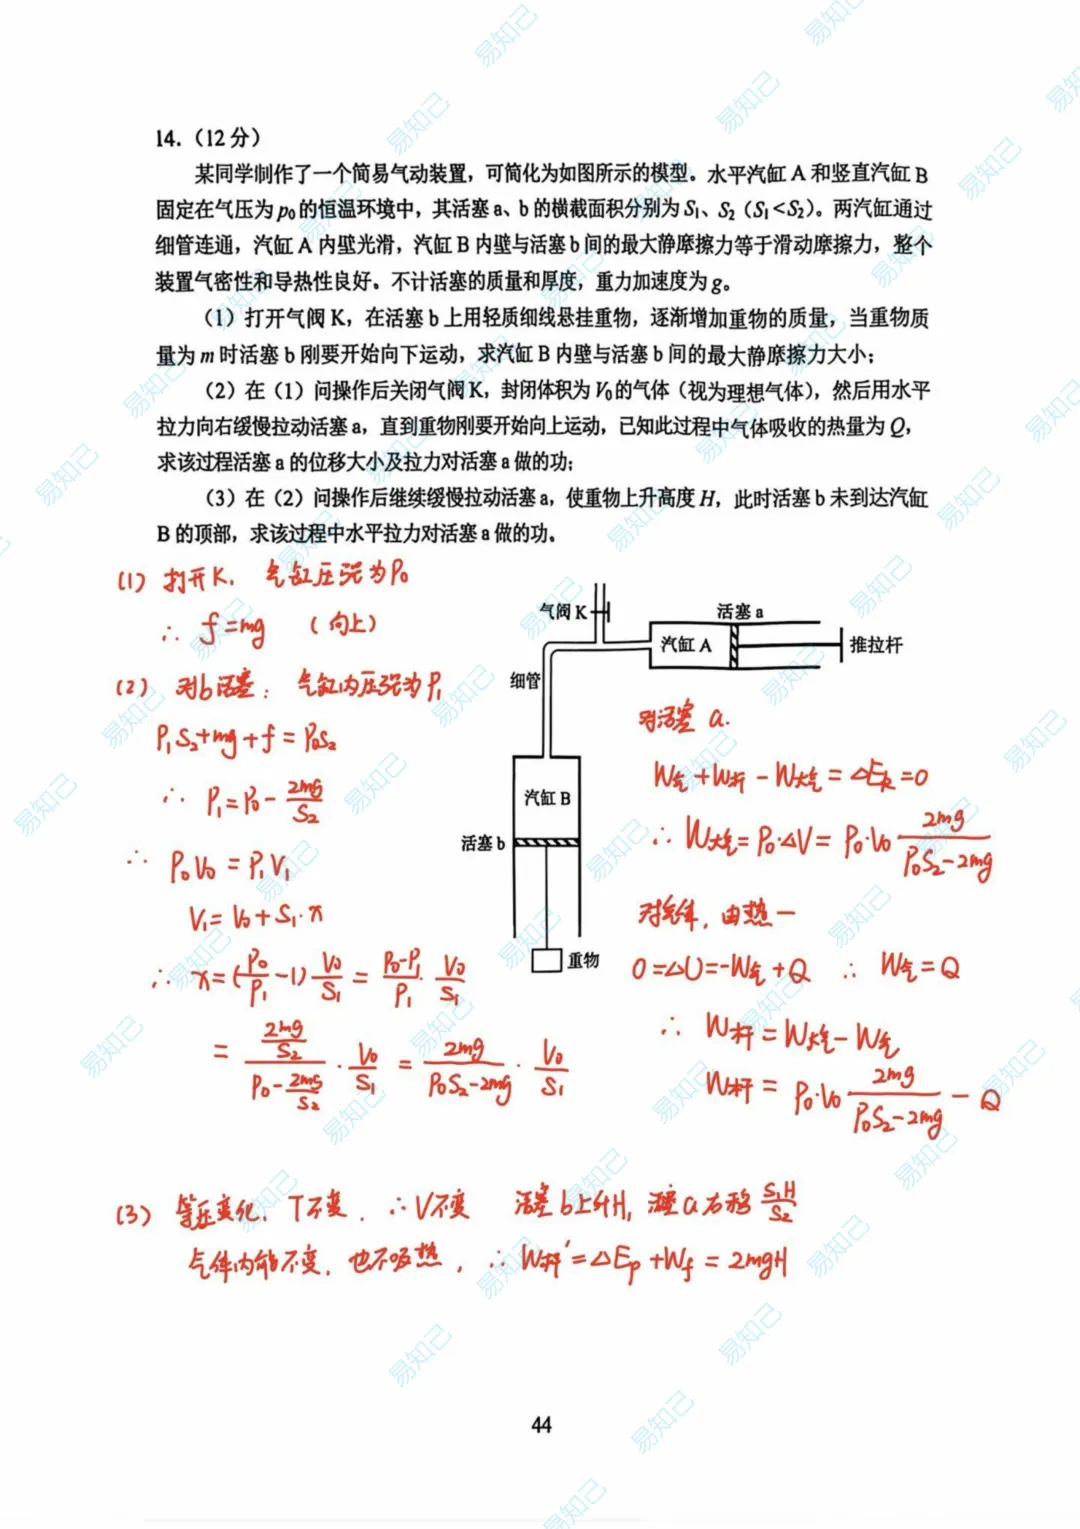 14.（12 分）
某同学制作了一个简易气动装置，可简化为如图所示的模型。水平汽缸 A 和竖直汽缸 B
固定在气压为 p₀ 的恒温环境中，其活塞 a、b 的横截面积分别为 S₁、S₂（S₁<S₂）。两汽缸通过
细管连通，汽缸 A 内壁光滑，汽缸 B 内壁与活塞 b 间的最大静摩擦力等于滑动摩擦力，整个
装置气密性和导热性良好。不计活塞的质量和厚度，重力加速度为 g。
（1）打开气阀 K，在活塞 b 上用轻质细线悬挂重物，逐渐增加重物的质量，当重物质
量为 m 时活塞 b 刚要开始向下运动，求汽缸 B 内壁与活塞 b 间的最大静摩擦力大小；
（2）在（1）问操作后关闭气阀 K，封闭体积为 V₀ 的气体（视为理想气体），然后用水平
拉力向右缓慢拉动活塞 a，直到重物刚要开始向上运动，已知此过程中气体吸收的热量为 Q，
求该过程活塞 a 的位移大小及拉力对活塞 a 做的功；
（3）在（2）问操作后继续缓慢拉动活塞 a，使重物上升高度 H，此时活塞 b 未到达汽缸
B 的顶部，求该过程中水平拉力对活塞 a 做的功。
(1) 打开K，气缸压强为P₀
∴ f=mg （向上）
(2) 对b活塞：气缸内压强为P₁
P₁S₂+mg+f=P₀S₂
∴ P₁=P₀-2mg/S₂
∴ P₀V₀=P₁V₁
V₁=V₀+S₁·x
∴ x=(P₀/P₁-1)V₀/S₁=P₀-P₁/P₁·V₀/S₁
=2mg/S₂/P₀-2mg/S₂·V₀/S₁=2mg/P₀S₂-2mg·V₀/S₁
气阀 K
活塞 a
汽缸 A
推拉杆
细管
汽缸 B
活塞 b
重物
对活塞 a.
W气+W杆-W大气=△Eₖ=0
∴ W大气=P₀·△V=P₀·V₀ 2mg/P₀S₂-2mg
对气体，由热一
0=△U=-W气+Q ∴ W气=Q
∴ W杆=W大气-W气
W杆=P₀·V₀ 2mg/P₀S₂-2mg - Q
(3) 等压变化，T不变，∴V不变 活塞b上升H，活塞a右移 S₁H/S₂
气体内能不变，也不吸热，∴ W杆'=△Eₚ+W_f=2mgH
44
易知己